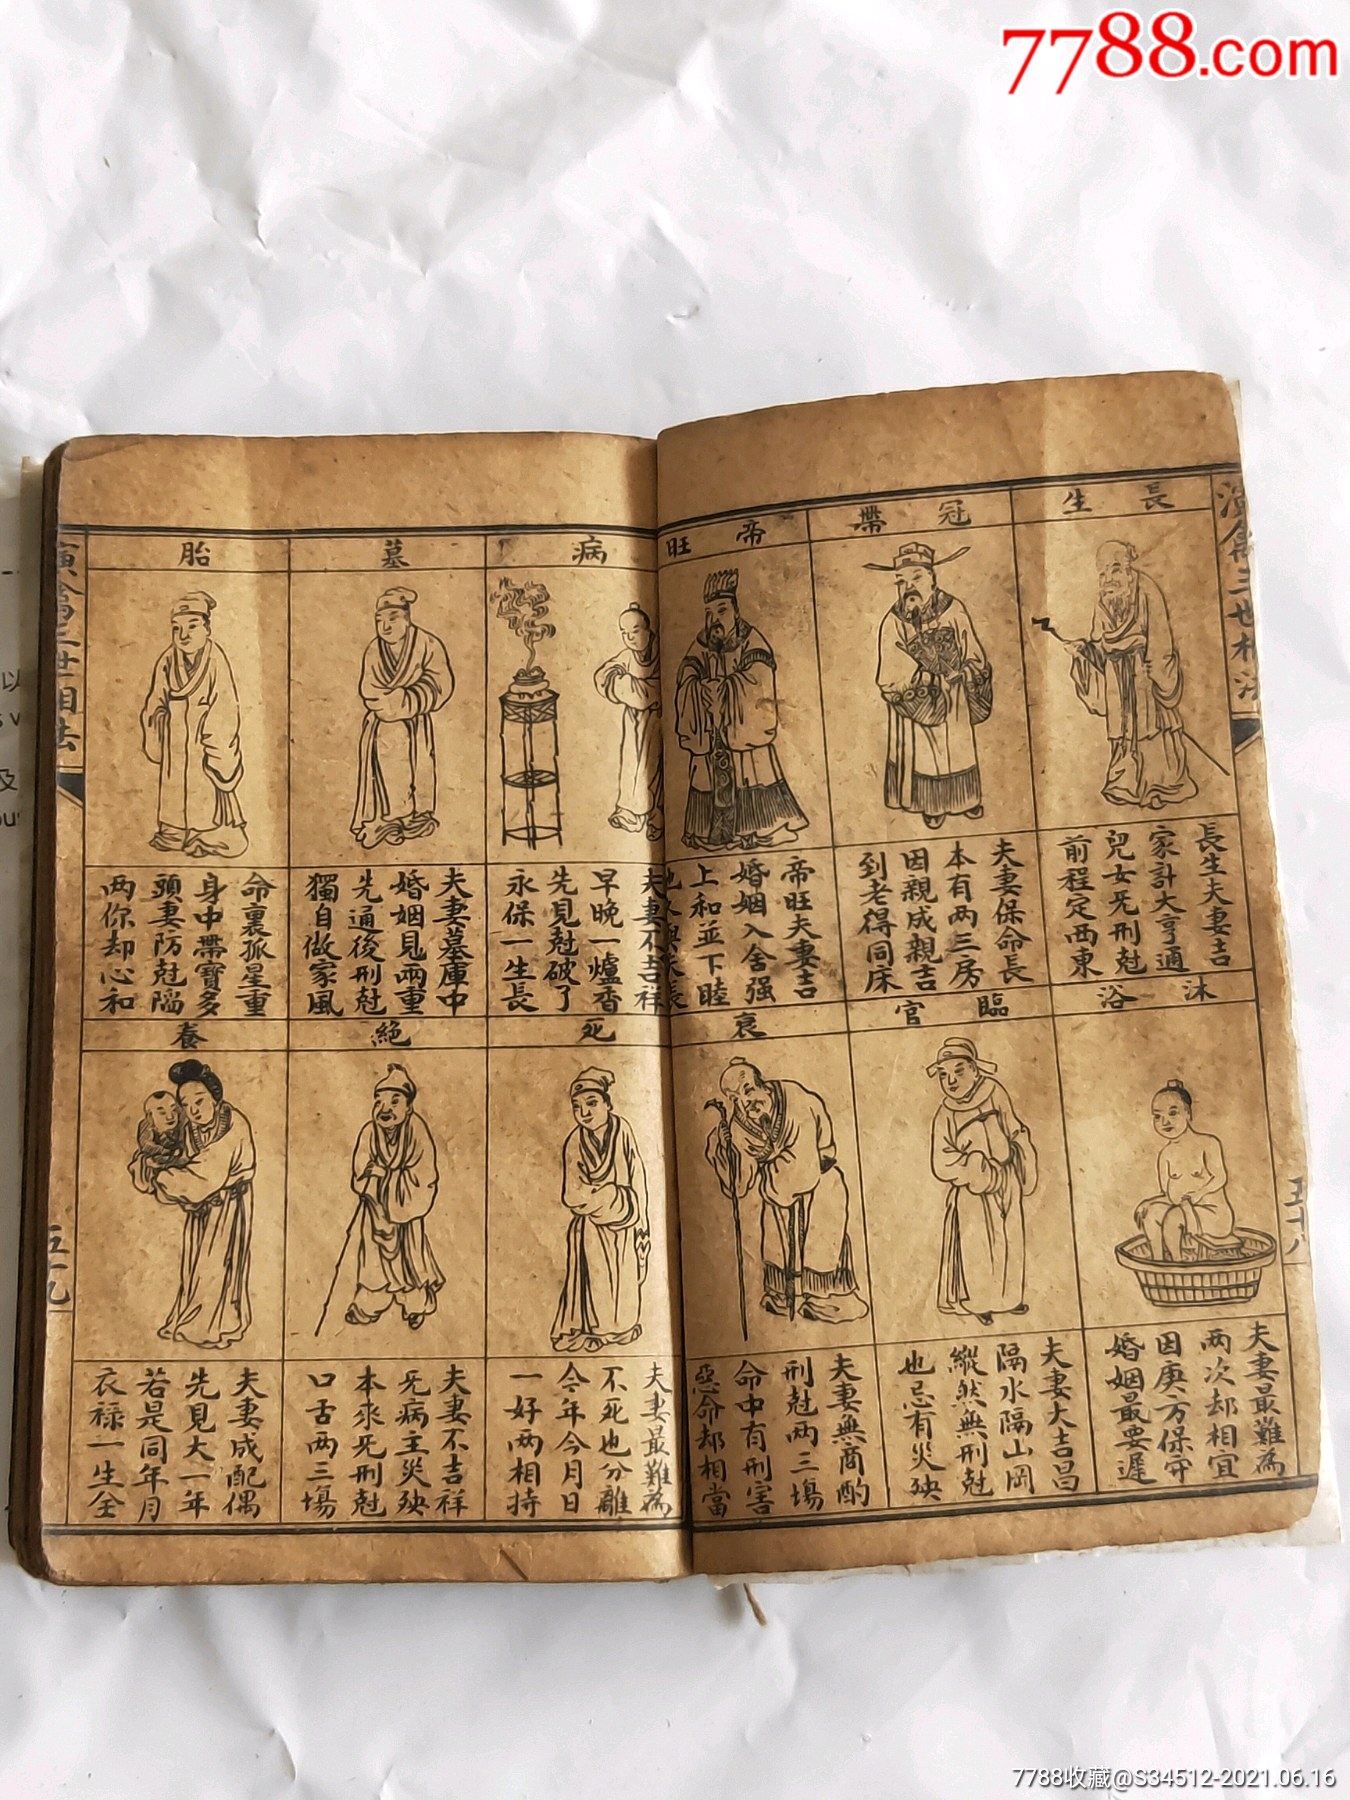 7788.com
演禽三世相法
長生
長生夫妻吉
家計大亨通
兒女死刑尅
前程定西東
沐浴
夫妻最難為
两次却相宜
因庚万保安
婚姻最要遲
冠帶
夫妻保命長
本有两三房
因親成親吉
到老得同床
臨官
夫妻大吉昌
隔水隔山岡
縱然無刑尅
也忌有災殃
帝旺
帝旺夫妻吉
婚姻入舍强
上和並下睦
衰
夫妻無商酌
刑尅两三場
命中有刑害
惡命却相當
五十八
病
夫妻不吉祥
早晚一爐香
先見尅破了
永保一生長
死
夫妻最難為
不死也分離
今年今月日
一好两相持
墓
夫妻墓庫中
婚姻見兩重
先通後刑尅
獨自做家風
絕
夫妻不吉祥
死病主災殃
本來死刑尅
口舌两三場
胎
命裏孤星重
身中帶寶多
頭妻防尅隔
两你却心和
養
夫妻成配偶
先見大一年
若是同年月
衣禄一生全
演禽三世相法
五十九
以
及
7788收藏@S34512-2021.06.16